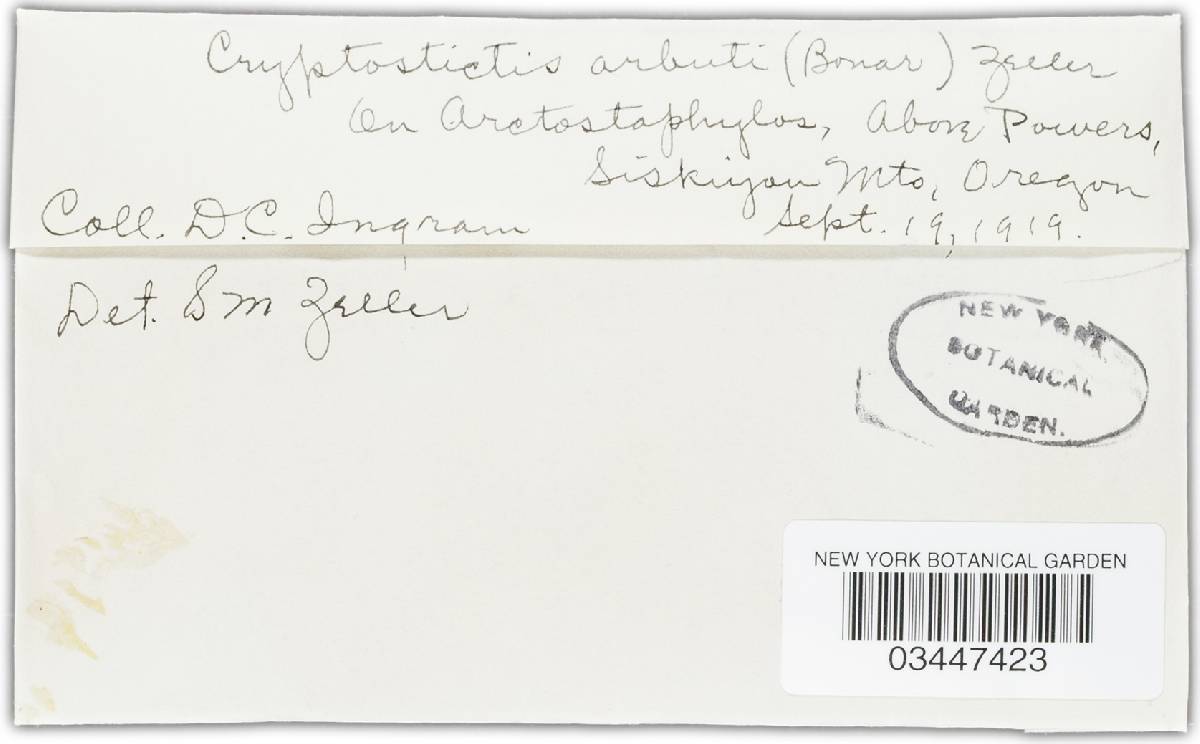 Cryptostictis arbuti (Bonar) Zeller
On Arctostaphylos, Above Powers,
Siskiyou Mts, Oregon
Coll. D.C. Ingram Sept. 19, 1919.
Det. S M Zeller
NEW YORK
BOTANICAL
GARDEN.
NEW YORK BOTANICAL GARDEN
03447423